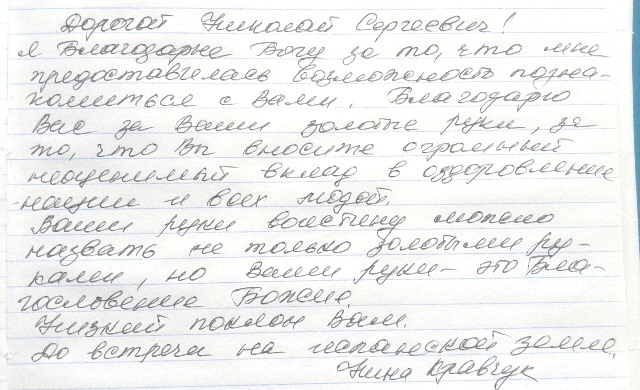 Дорогой Николай Сергеевич!
Я благодарю Богу за то, что мне
предоставилась возможность позна-
комиться с Вами. Благодарю
Вас за Ваши золотые руки, за
то, что Вы вносите огромный
неоценимый вклад в оздоровление
нации и всех людей.
Ваши руки воистину можно
назвать не только золотыми ру-
ками, но Ваши руки - это Бла-
гословение Божие.
Низкий поклон Вам.
До встречи на испанской земле.
Нина Кравчук